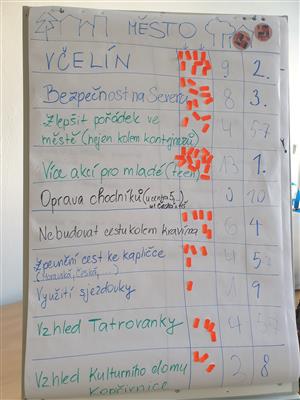 MĚSTO
VČELÍN 9 2.
Bezpečnost na Severu 8 3.
Zlepšit pořádek ve
městě (nejen kolem kontejnerů) 4 5-7
Více akcí pro mladé (teen) 13 1.
Oprava chodníků (u centra 5...) 0 10
Nebudovat cestu kolem kravína 6 4
Zpevnění cest ke kapličce 4 5-7
Využití sjezdovky 1 9
Vzhled Tatrovanky 4 5-7
Vzhled Kulturního domu 8
Kopřivnice